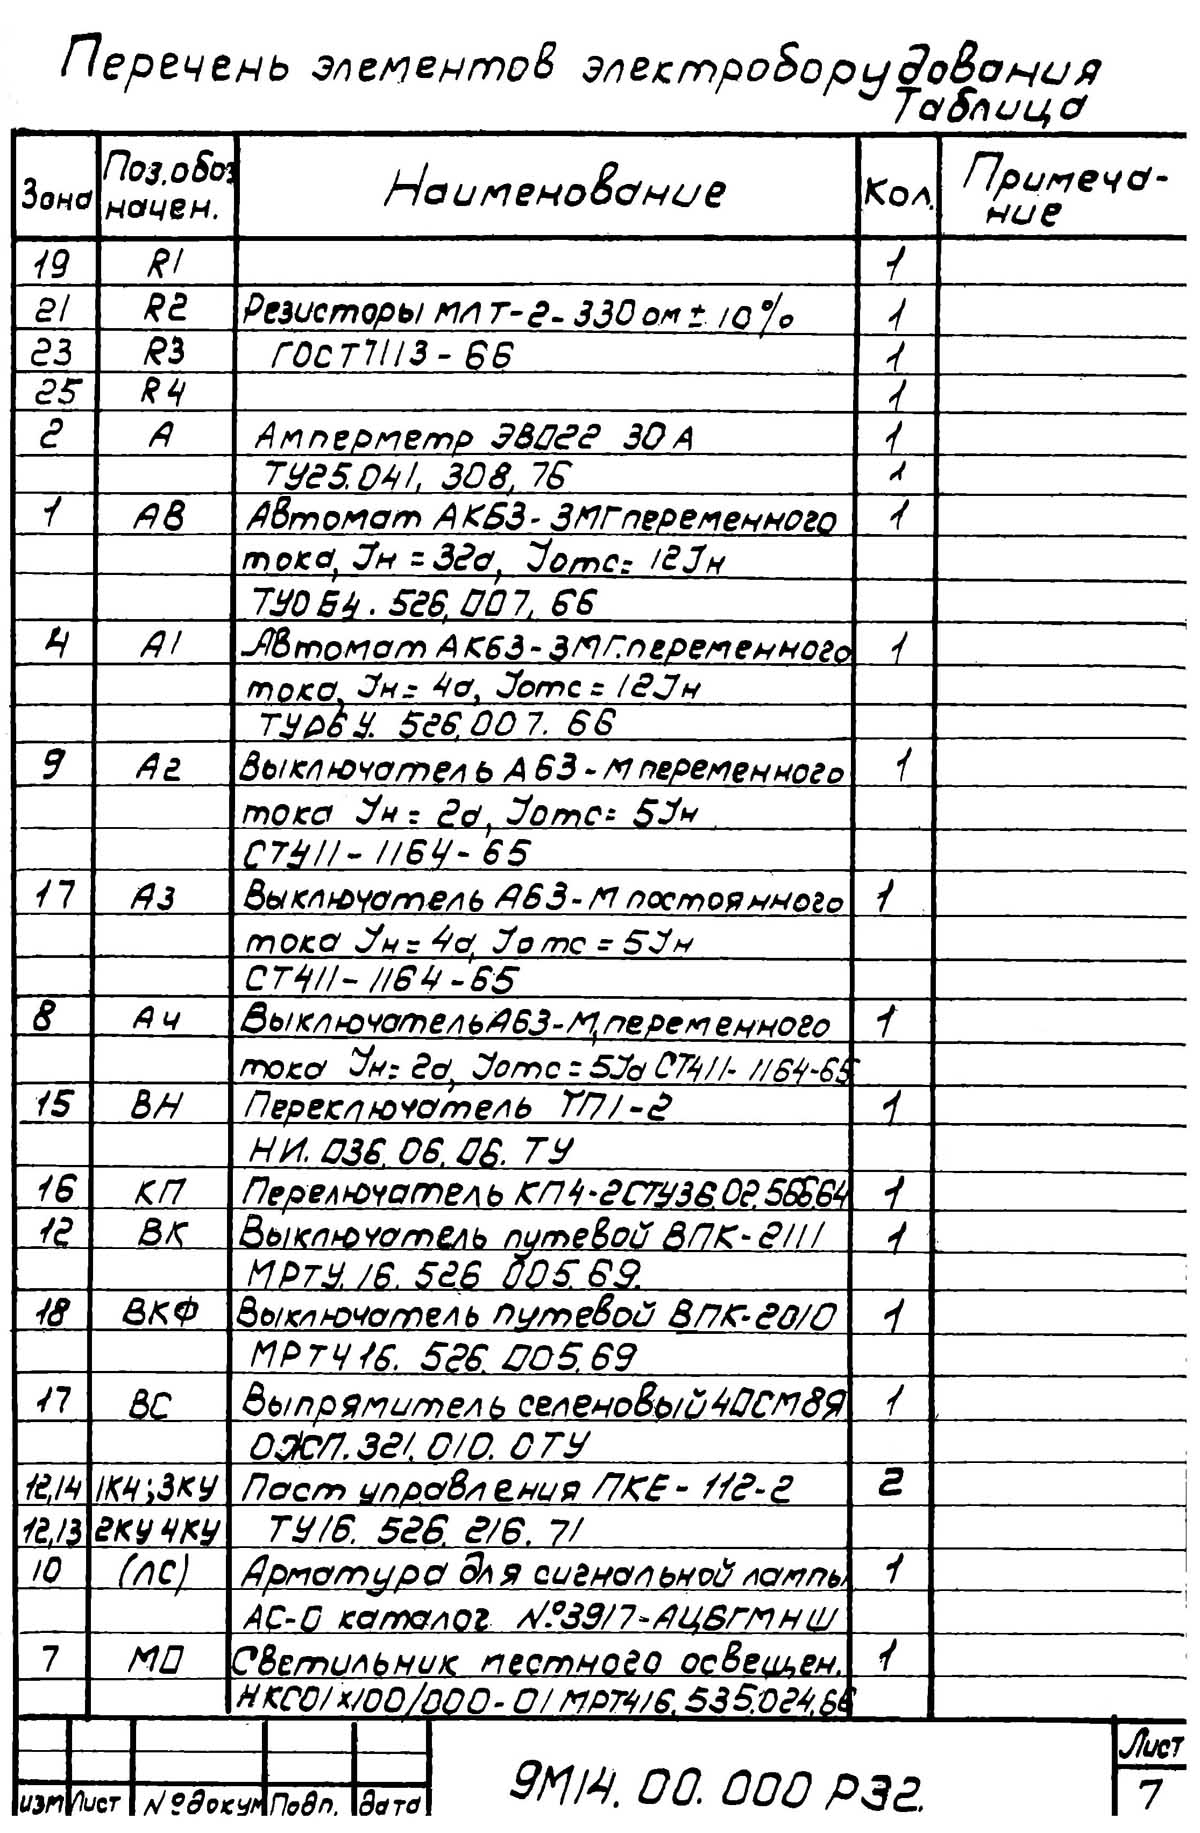 Перечень элементов электроборудования
Таблица
Зона Поз.обоз начен. Наименование Кол. Примеча-ние
19 R1 1
21 R2 Резисторы МЛТ-2-330 ом ± 10% 1
23 R3 ГОСТ7113-66 1
25 R4 1
2 А Амперметр ЭВ022 30А 1
ТУ25.041, 308, 76 1
1 АВ Автомат АКБ3-3МГ переменного 1
тока, Iн = 32а, Iотс= 12Iн
ТУОБ4. 526,007, 66
4 А1 Автомат АК63-3МГ.переменного 1
тока, Iн= 4а, Iотс= 12Iн
ТУОБУ. 526,007. 66
9 А2 Выключатель А63-М переменного 1
тока Iн= 2а, Iотс= 5Iн
СТУ11-1164-65
17 А3 Выключатель А63-М постоянного 1
тока Iн= 4а, Iотс = 5Iн
СТ411-1164-65
8 А4 Выключатель А63-М, переменного 1
тока Iн= 2а, Iотс= 5Iа СТ411-1164-65
15 ВН Переключатель ТП1-2 1
НИ.036.06.06. ТУ
16 КП Перелючатель КП4-2СТУ36.02.566.64 1
12 ВК Выключатель путевой ВПК-2111 1
МРТУ.16. 526 005.69.
18 ВКФ Выключатель путевой ВПК-2010 1
МРТЧ 16. 526. 005.69
17 ВС Выпрямитель селеновый 40СМ8Я 1
ОЖП.321.010. ОТУ
12,14 1К4;3КУ Паст управления ПКЕ-112-2 2
12,13 2КУ 4КУ ТУ16. 526. 216. 71
10 (ЛС) Арматура для сигнальной лампы 1
АС-0 каталог №3917-АЦБГМНШ
7 МО Светильник местного освещен. 1
НКС01х100/000-01 МРТ416.535.024.66
изм Лист № докум Подп. дата
9М14.00.000 РЭ2.
Лист
7